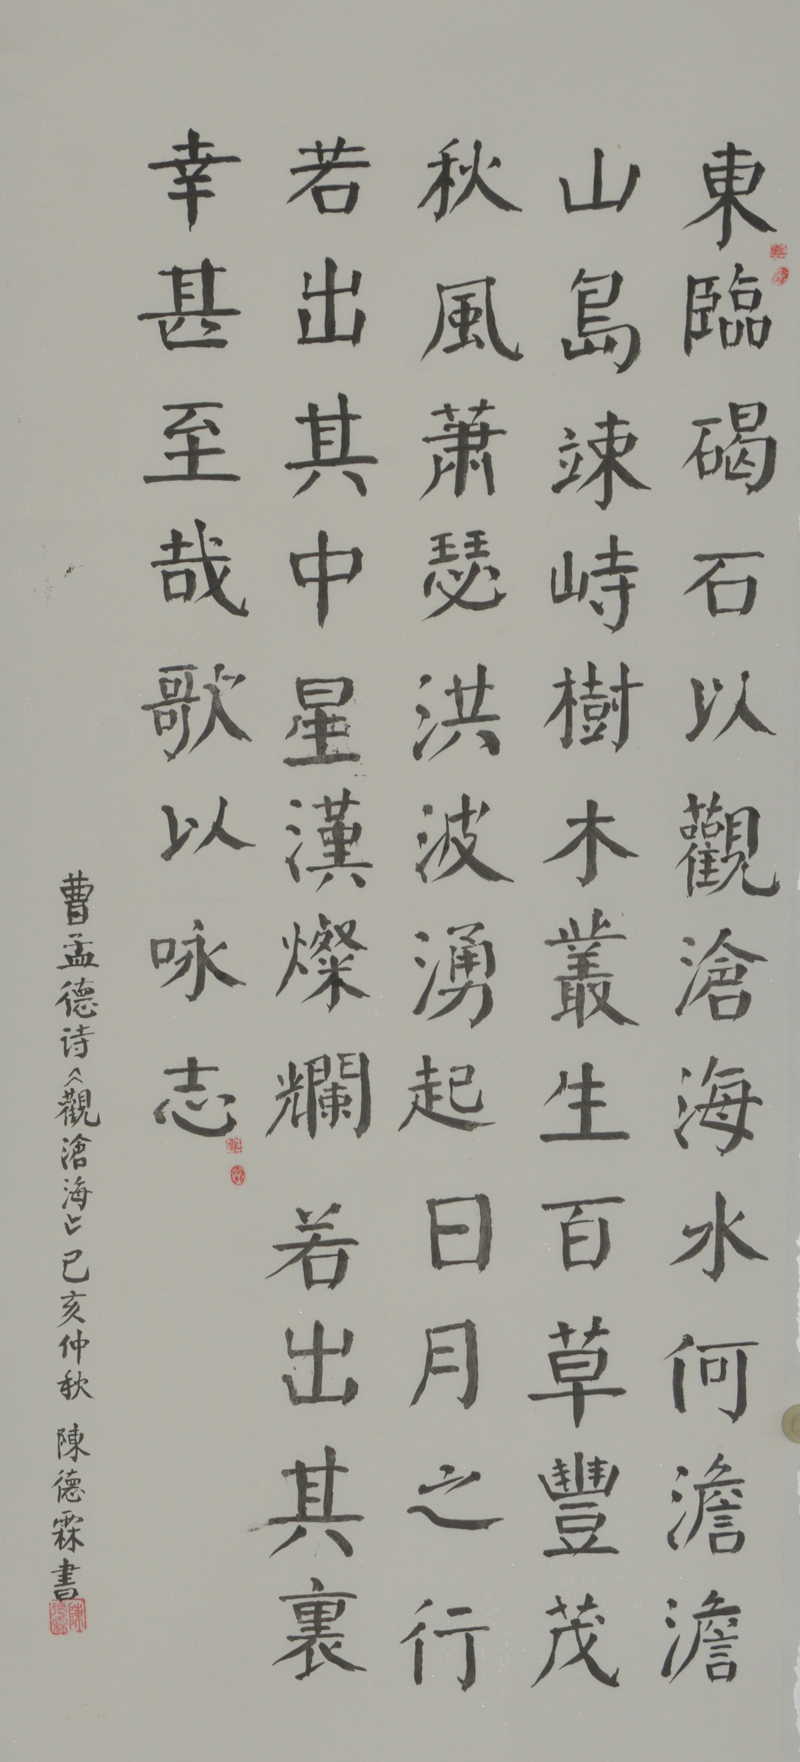 東臨碣石以觀滄海水何澹澹
山島竦峙樹木叢生百草豐茂
秋風蕭瑟洪波湧起日月之行
若出其中星漢燦爛若出其裏
幸甚至哉歌以咏志
曹孟德诗《觀滄海》己亥仲秋 陳德霖書